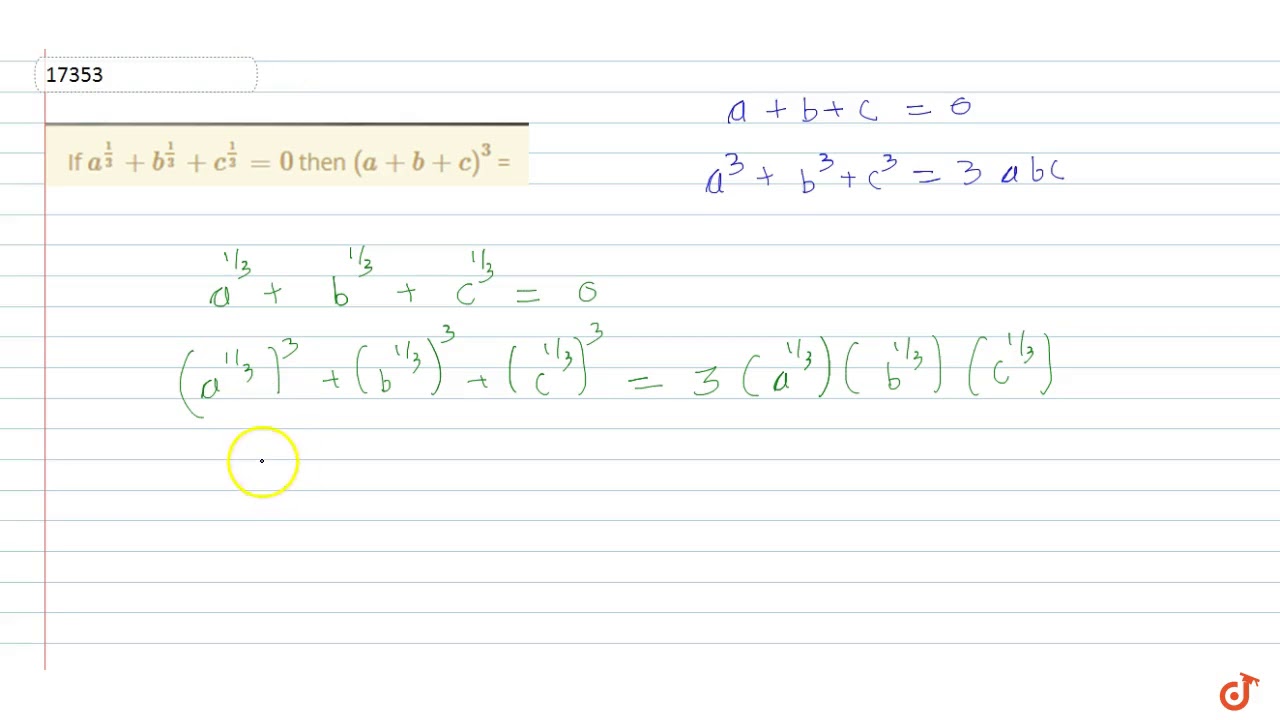 17353
a + b + c = 0
If a^{1/3} + b^{1/3} + c^{1/3} = 0 then (a + b + c)^3 =
a^3 + b^3 + c^3 = 3 abc
a^{1/3} + b^{1/3} + c^{1/3} = 0
(a^{1/3})^3 + (b^{1/3})^3 + (c^{1/3})^3 = 3 (a^{1/3}) (b^{1/3}) (c^{1/3})